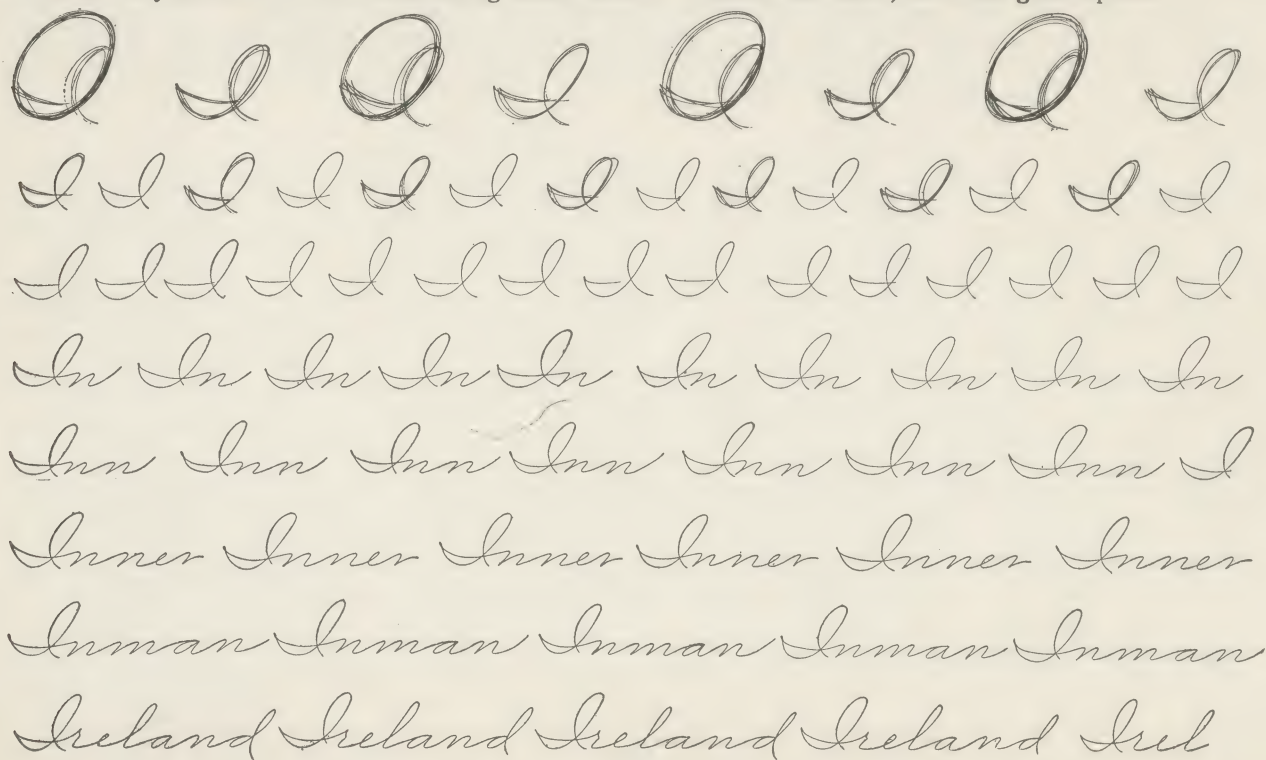 I I I I I I I I
I I I I I I I I I I I I I I
I I I I I I I I I I I I I I I
In In In In In In In In In In
Inn Inn Inn Inn Inn Inn Inn I
Inner Inner Inner Inner Inner Inner
Inman Inman Inman Inman Inman
Ireland Ireland Ireland Ireland Irel